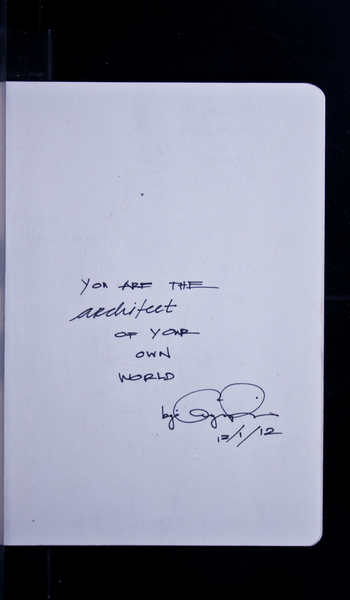 YOU ARE THE
architect
OF YOUR
OWN
WORLD
by:
12/1/12